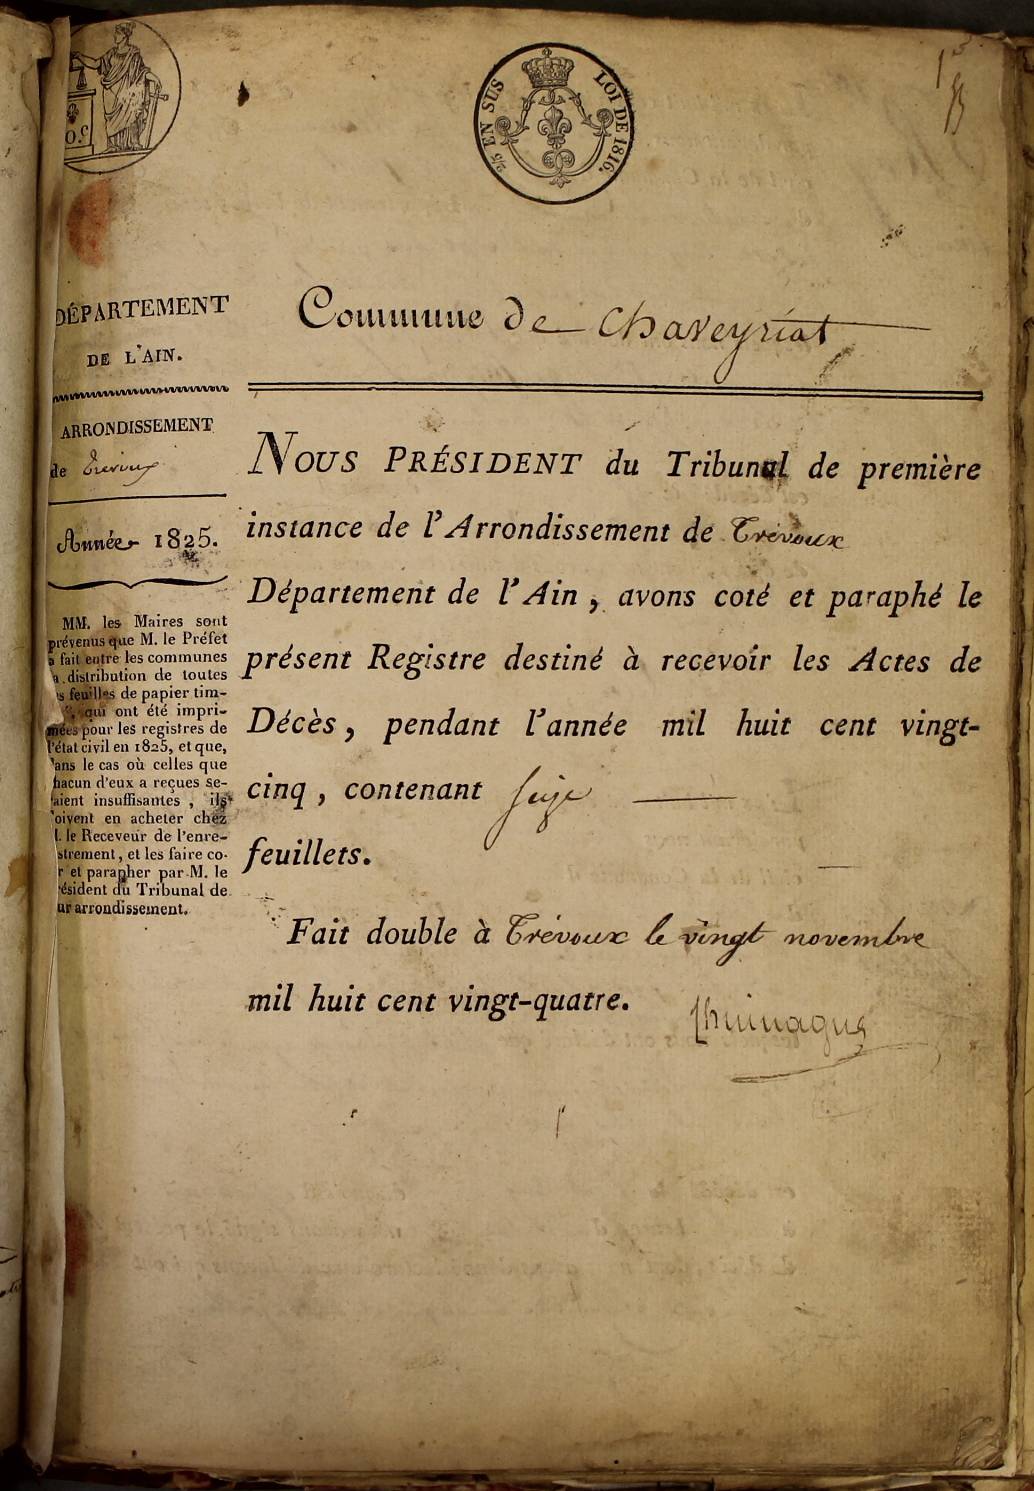 2/5 EN SUS LOI DE 1816.
DÉPARTEMENT
DE L'AIN.
ARRONDISSEMENT
de Trévoux
Année 1825.
MM. les Maires sont
prévenus que M. le Préfet
a fait entre les communes
a distribution de toutes
s feuilles de papier tim-
qui ont été impri-
mées pour les registres de
l'état civil en 1825, et que,
ans le cas où celles que
hacun d'eux a reçues se-
aient insuffisantes, ils
oivent en acheter chez
. le Receveur de l'enre-
strement, et les faire co-
r et parapher par M. le
résident du Tribunal de
ur arrondissement.
Commune de Chaveyriat
NOUS PRÉSIDENT du Tribunal de première
instance de l'Arrondissement de Trévoux
Département de l'Ain, avons coté et paraphé le
présent Registre destiné à recevoir les Actes de
Décès, pendant l'année mil huit cent vingt-
cinq, contenant seize
feuillets.
Fait double à Trévoux le vingt novembre
mil huit cent vingt-quatre.